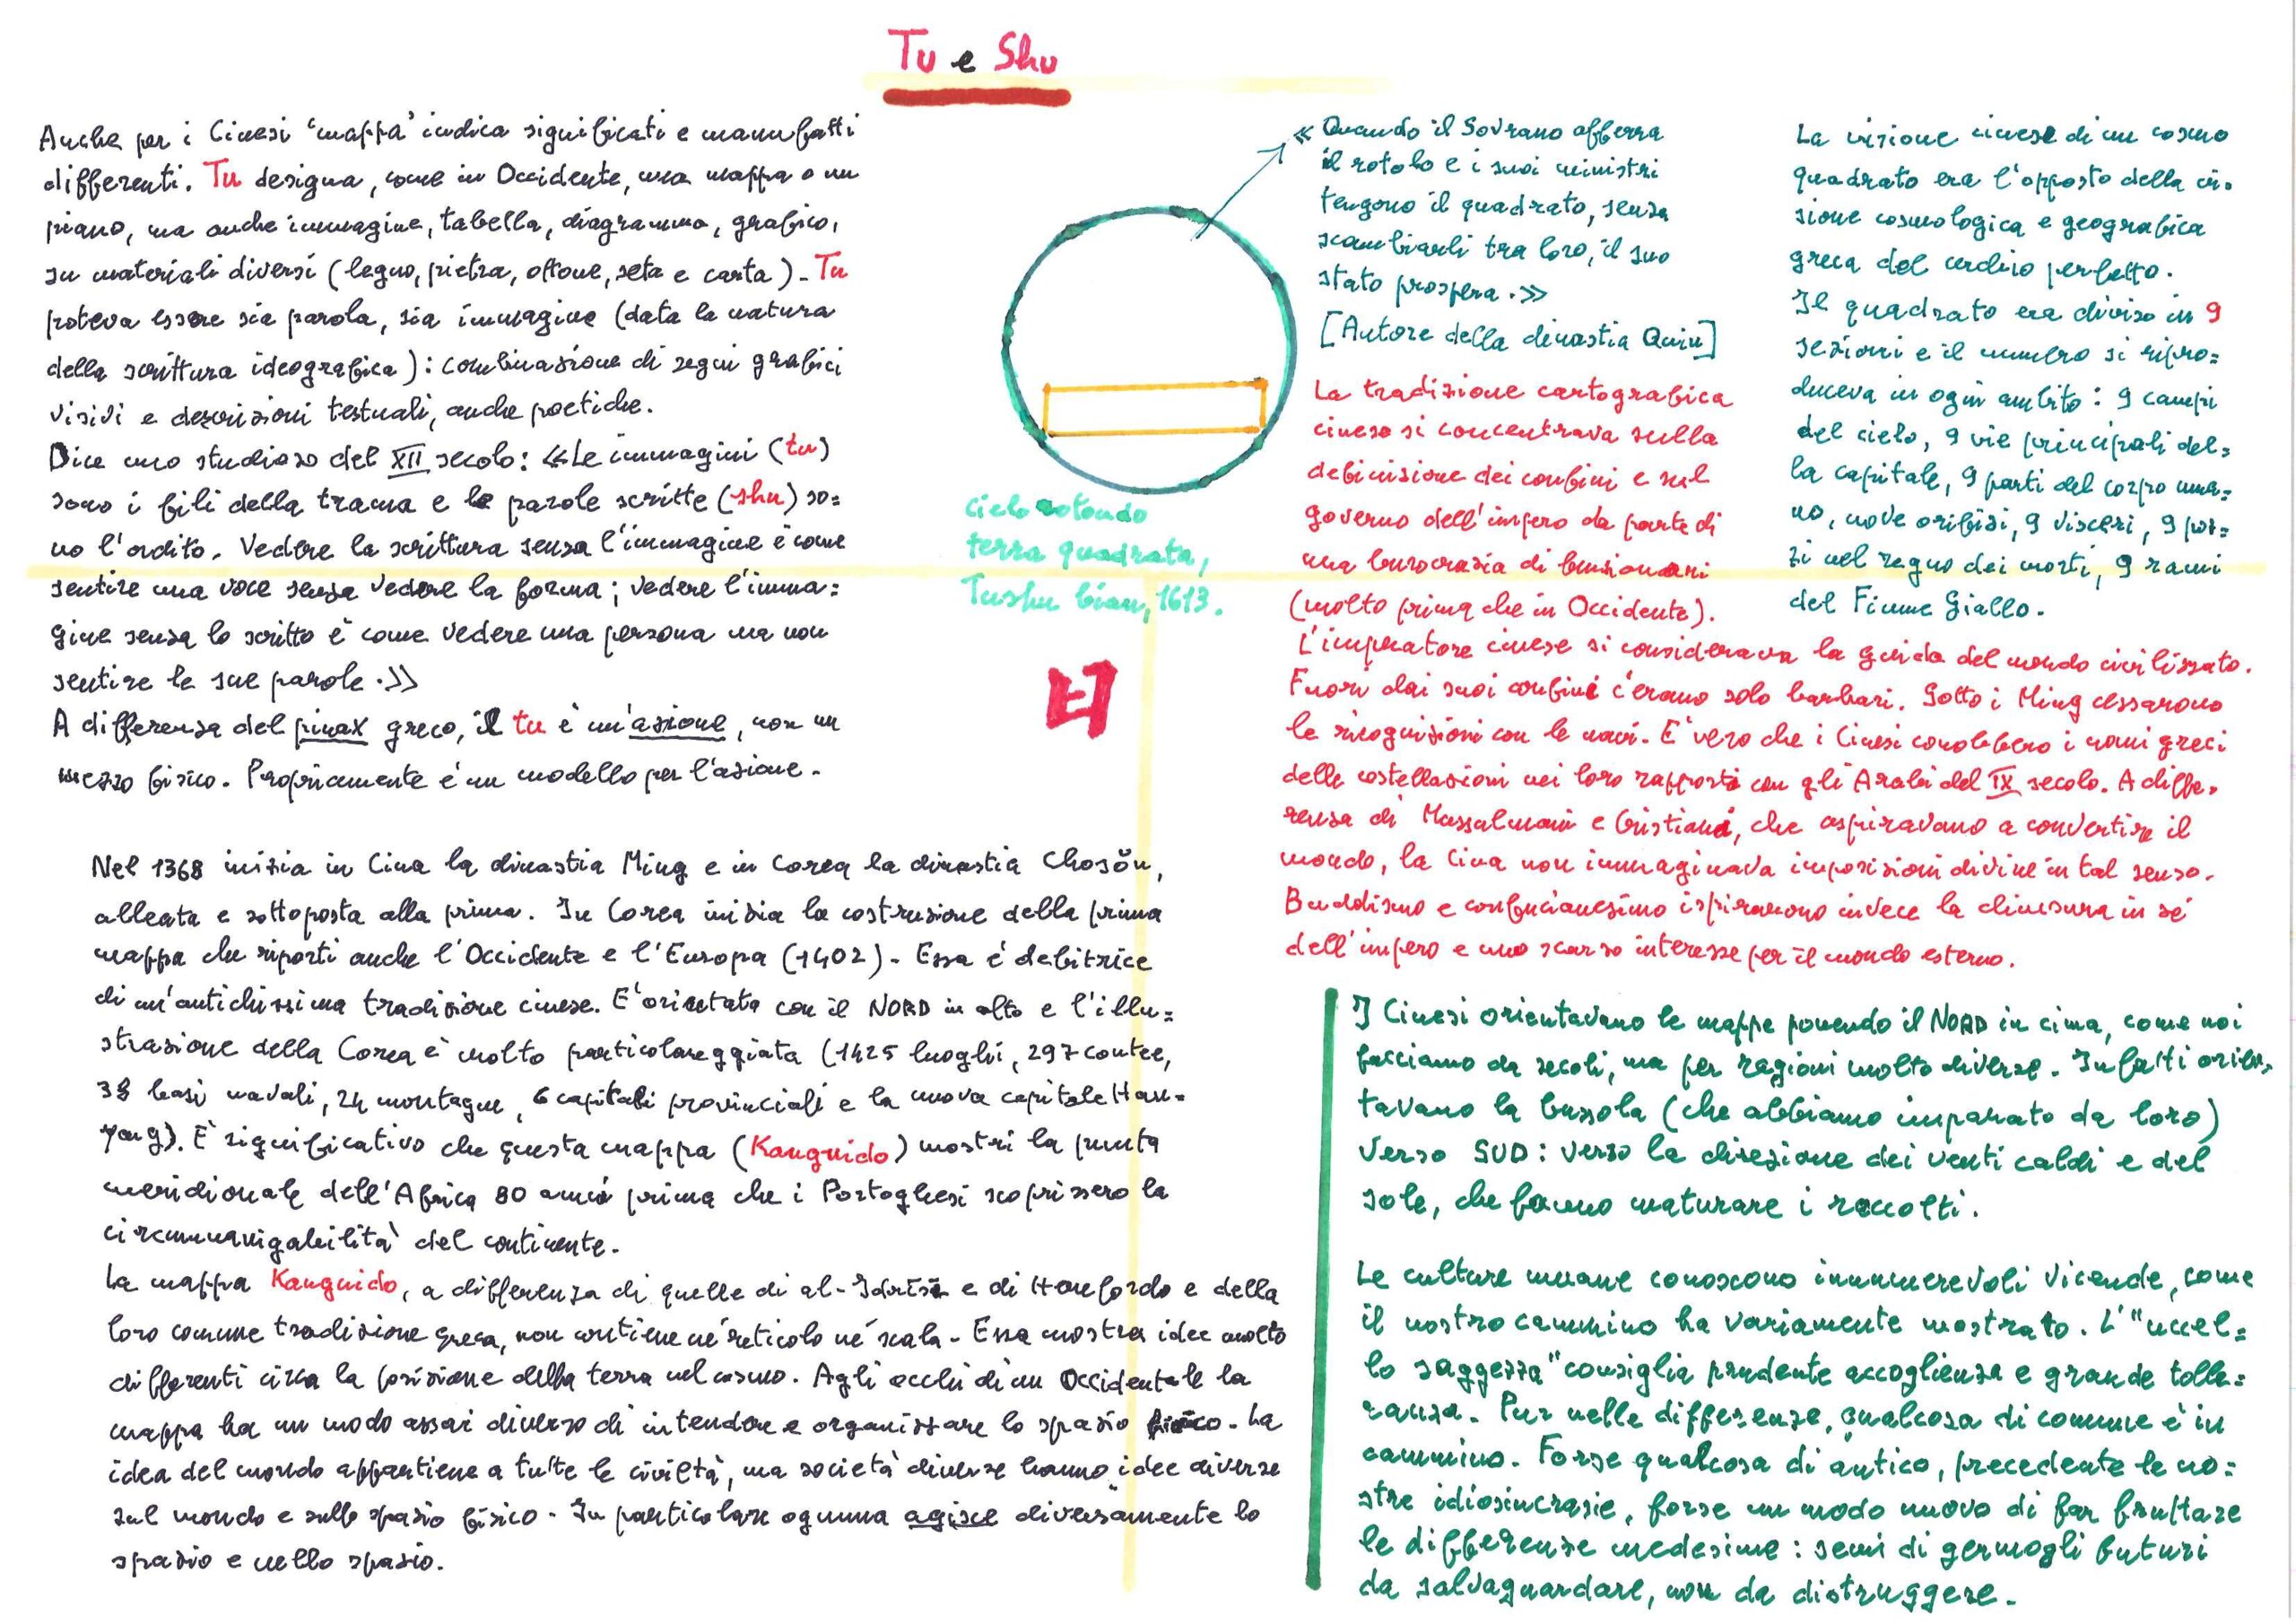 Tu e Shu
Anche per i Cinesi 'mappa' indica significati e manufatti
differenti. Tu designa, come in Occidente, una mappa o un
piano, ma anche immagine, tabella, diagramma, grafico,
su materiali diversi (legno, pietra, ottone, seta e carta). Tu
poteva essere sia parola, sia immagine (data la natura
della scrittura ideografica): combinazione di segni grafici
visivi e descrizioni testuali, anche poetiche.
Dice uno studioso del XII secolo: «Le immagini (tu)
sono i fili della trama e le parole scritte (shu) so=
no l'ordito. Vedere la scrittura senza l'immagine è come
sentire una voce senza vedere la forma; vedere l'imma=
gine senza lo scritto è come vedere una persona ma non
sentire le sue parole.»
A differenza del pinax greco, il tu è un'azione, non un
mezzo fisico. Propriamente è un modello per l'azione.
Nel 1368 inizia in Cina la dinastia Ming e in Corea la dinastia Chosŏn,
alleata e sottoposta alla prima. In Corea inizia la costruzione della prima
mappa che riporti anche l'Occidente e l'Europa (1402). Essa è debitrice
di un'antichissima tradizione cinese. E' orientata con il NORD in alto e l'illu=
strazione della Corea è molto particolareggiata (1425 luoghi, 297 contee,
38 basi navali, 24 montagne, 6 capitali provinciali e la nuova capitale Han=
yang). E' significativo che questa mappa (Kangnido) mostri la punta
meridionale dell'Africa 80 anni prima che i Portoghesi scoprissero la
circumnavigabilità del continente.
La mappa Kangnido, a differenza di quelle di al-Idrīsī e di Hereford e della
loro comune tradizione greca, non contiene né reticolo né scala. Essa mostra idee molto
differenti circa la posizione della terra nel cosmo. Agli occhi di un Occidentale la
mappa ha un modo assai diverso di intendere e organizzare lo spazio fisico. La
idea del mondo appartiene a tutte le civiltà, ma società diverse hanno idee diverse
sul mondo e sullo spazio fisico. In particolare ognuna agisce diversamente lo
spazio e nello spazio.
cielo rotondo
terra quadrata,
Tushu bian, 1613.
日
«Quando il Sovrano afferra
il rotolo e i suoi ministri
tengono il quadrato, senza
scambiarli tra loro, il suo
stato prospera.»
[Autore della dinastia Quin]
La tradizione cartografica
cinese si concentrava sulla
definizione dei confini e sul
governo dell'impero da parte di
una burocrazia di funzionari
(molto prima che in Occidente).
L'imperatore cinese si considerava la guida del mondo civilizzato.
Fuori dai suoi confini c'erano solo barbari. Sotto i Ming cessarono
le ricognizioni con le navi. E' vero che i Cinesi conobbero i nomi greci
delle costellazioni nei loro rapporti con gli Arabi del IX secolo. A diffe=
renza di Mussulmani e Cristiani, che aspiravano a convertire il
mondo, la Cina non immaginava imposizioni divine in tal senso.
Buddismo e confucianesimo ispiravano invece la chiusura in sé
dell'impero e uno scarso interesse per il mondo esterno.
La visione cinese di un cosmo
quadrato era l'opposto della vi=
sione cosmologica e geografica
greca del cerchio perfetto.
Il quadrato era diviso in 9
sezioni e il numero si ripro=
duceva in ogni ambito: 9 campi
del cielo, 9 vie principali del=
la capitale, 9 parti del corpo uma=
no, nove orifizi, 9 visceri, 9 poz=
zi nel regno dei morti, 9 rami
del Fiume Giallo.
I Cinesi orientavano le mappe ponendo il NORD in cima, come noi
facciamo da secoli, ma per ragioni molto diverse. Infatti orien=
tavano la bussola (che abbiamo imparato da loro)
verso SUD: verso la direzione dei venti caldi e del
sole, che fanno maturare i raccolti.
Le culture umane conoscono innumerevoli vicende, come
il nostro cammino ha variamente mostrato. L'"uccel=
lo saggezza" consiglia prudente accoglienza e grande tolle=
ranza. Pur nelle differenze, qualcosa di comune è in
cammino. Forse qualcosa di antico, precedente le no=
stre idiosincrasie, forse un modo nuovo di far fruttare
le differenze medesime: semi di germogli futuri
da salvaguardare, non da distruggere.